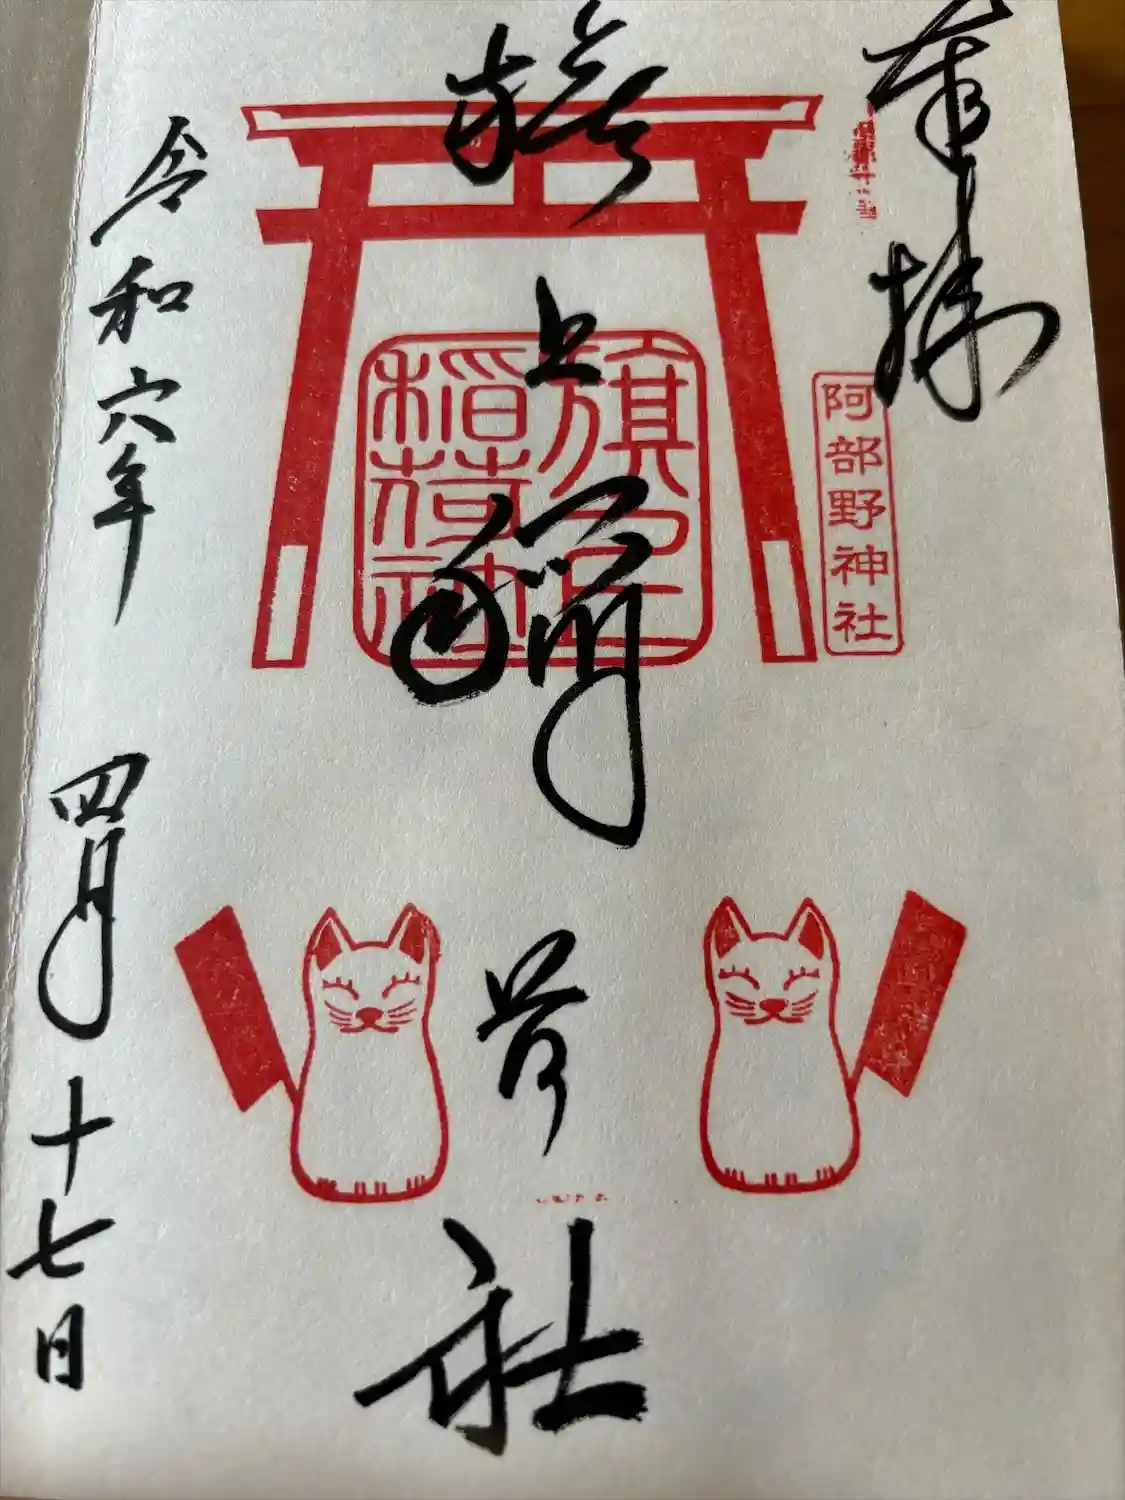 奉拝
阿部野神社
旗上稲荷社
旗上
稲荷社
令和六年 四月十七日